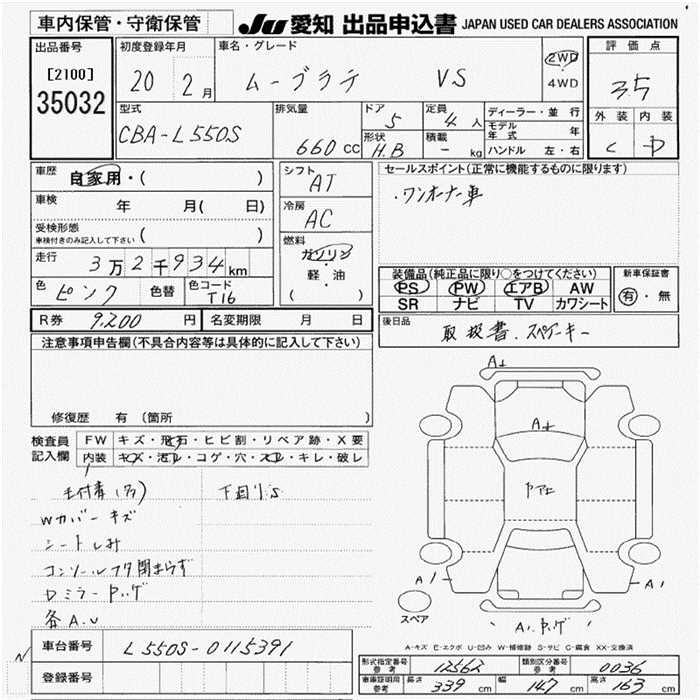 車内保管・守衛保管 JU 愛知 出品申込書 JAPAN USED CAR DEALERS ASSOCIATION
出品番号 [2100] 35032
初度登録年月 20 2月
車名・グレード ムーブラテ VS
2WD・4WD
評価点 35
外装 C 内装 D
型式 CBA-L550S
排気量 660cc
ドア 5 形状 H.B
定員 4人 積載 - kg
ディーラー・並行
モデル年式 年
ハンドル 左・右
車歴 自家用・( )
車検 年 月( 日)
受検形態 車検付きのみ記入して下さい ( )
走行 3万2千934km
色 ピンク 色替 色コード T16
シフト AT
冷房 AC
燃料 ガソリン・軽・油 ( )
セールスポイント(正常に機能するものに限ります)
・ワンオーナー車
装備品(純正品に限り○をつけてください)
PS PW エアB AW
SR ナビ TV カワシート
新車保証書 有・無
後日品 取扱書、スペアーキー
R券 9,200円 名変期限 月 日
注意事項申告欄(不具合内容等は具体的に記入して下さい)
修復歴 有(箇所 )
検査員記入欄
FW キズ・飛石・ヒビ割・リペア跡・X要
内装 キズ・汚れ・コゲ・穴・スレ・キレ・破レ
下回りS
Wカバーキズ
シートしみ
コンソールフタ閉まらず
各A.U
A↓
A↓
A1
A1
スペア
A-キズ E-エクボ U-凹み W-補修跡 S-サビ C-腐食 XX-交換済
車台番号 L550S-0115391
登録番号
型式指定番号 参考 12562 類別区分番号 参考 0036
車庫証明用 参考 長さ 339cm 幅 147cm 高さ 163cm